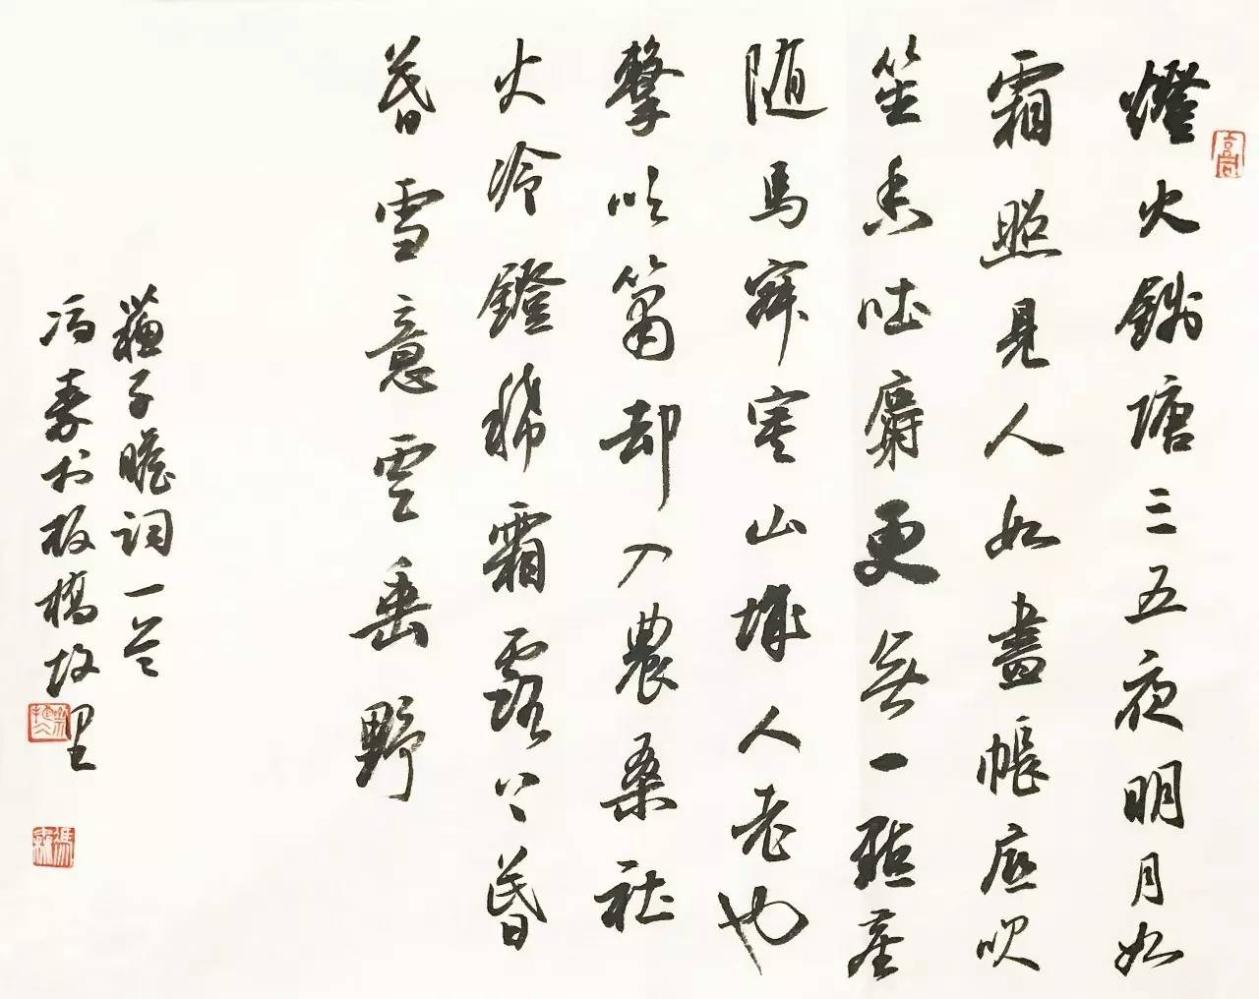 燈火錢塘三五夜明月如
霜照見人如畫帳底吹
笙香吐麝更無一點塵
随馬寂寞山城人老也
擊吹簫却入農桑社
火冷鐙稀霜露下昏
昏雪意雲垂野
蘇子瞻詞一首
馮於板橋故里